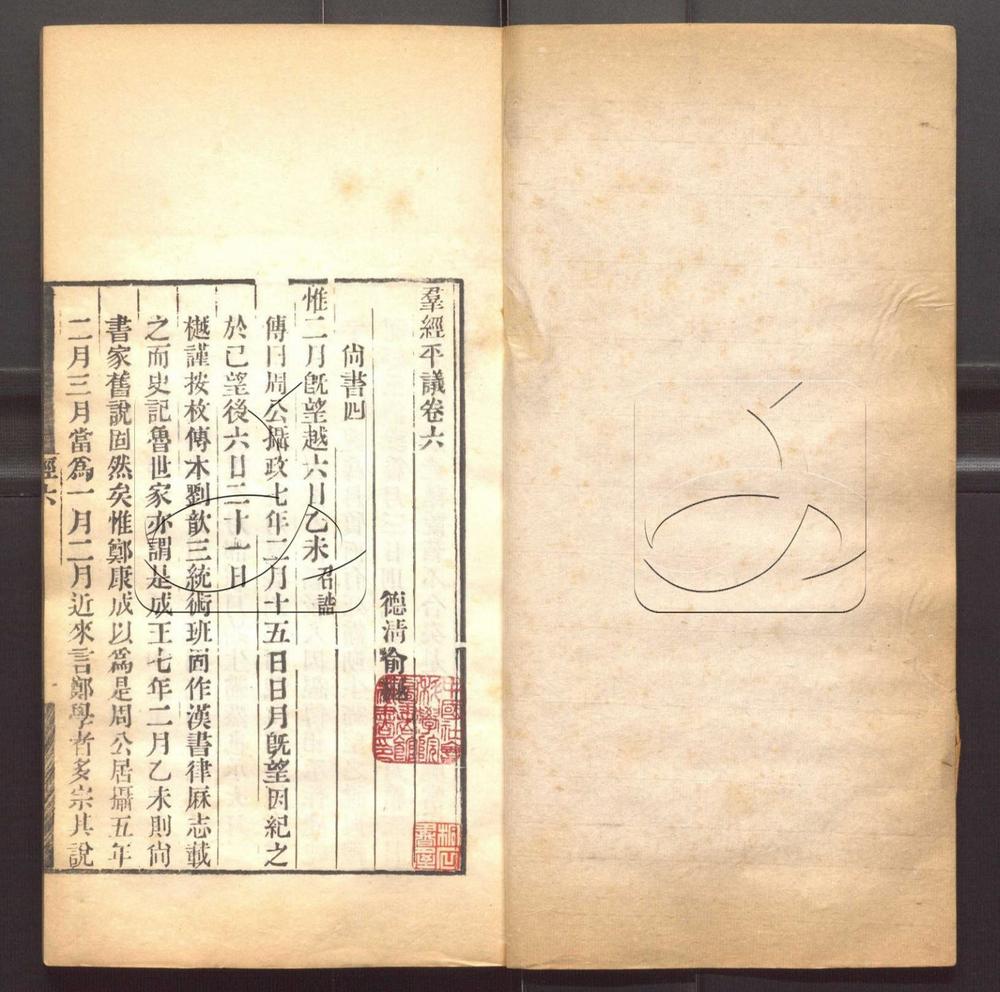 羣經平議卷六
德清俞樾
尙書四
惟二月旣望越六日乙未召誥
傳曰周公攝政七年二月十五日日月旣望因紀之
於已望後六日二十一日
樾謹按枚傳本劉歆三統術班固作漢書律厤志載
之而史記魯世家亦謂是成王七年二月乙未則尙
書家舊說固然矣惟鄭康成以爲是周公居攝五年
二月三月當爲一月二月近來言鄭學者多宗其說
經六